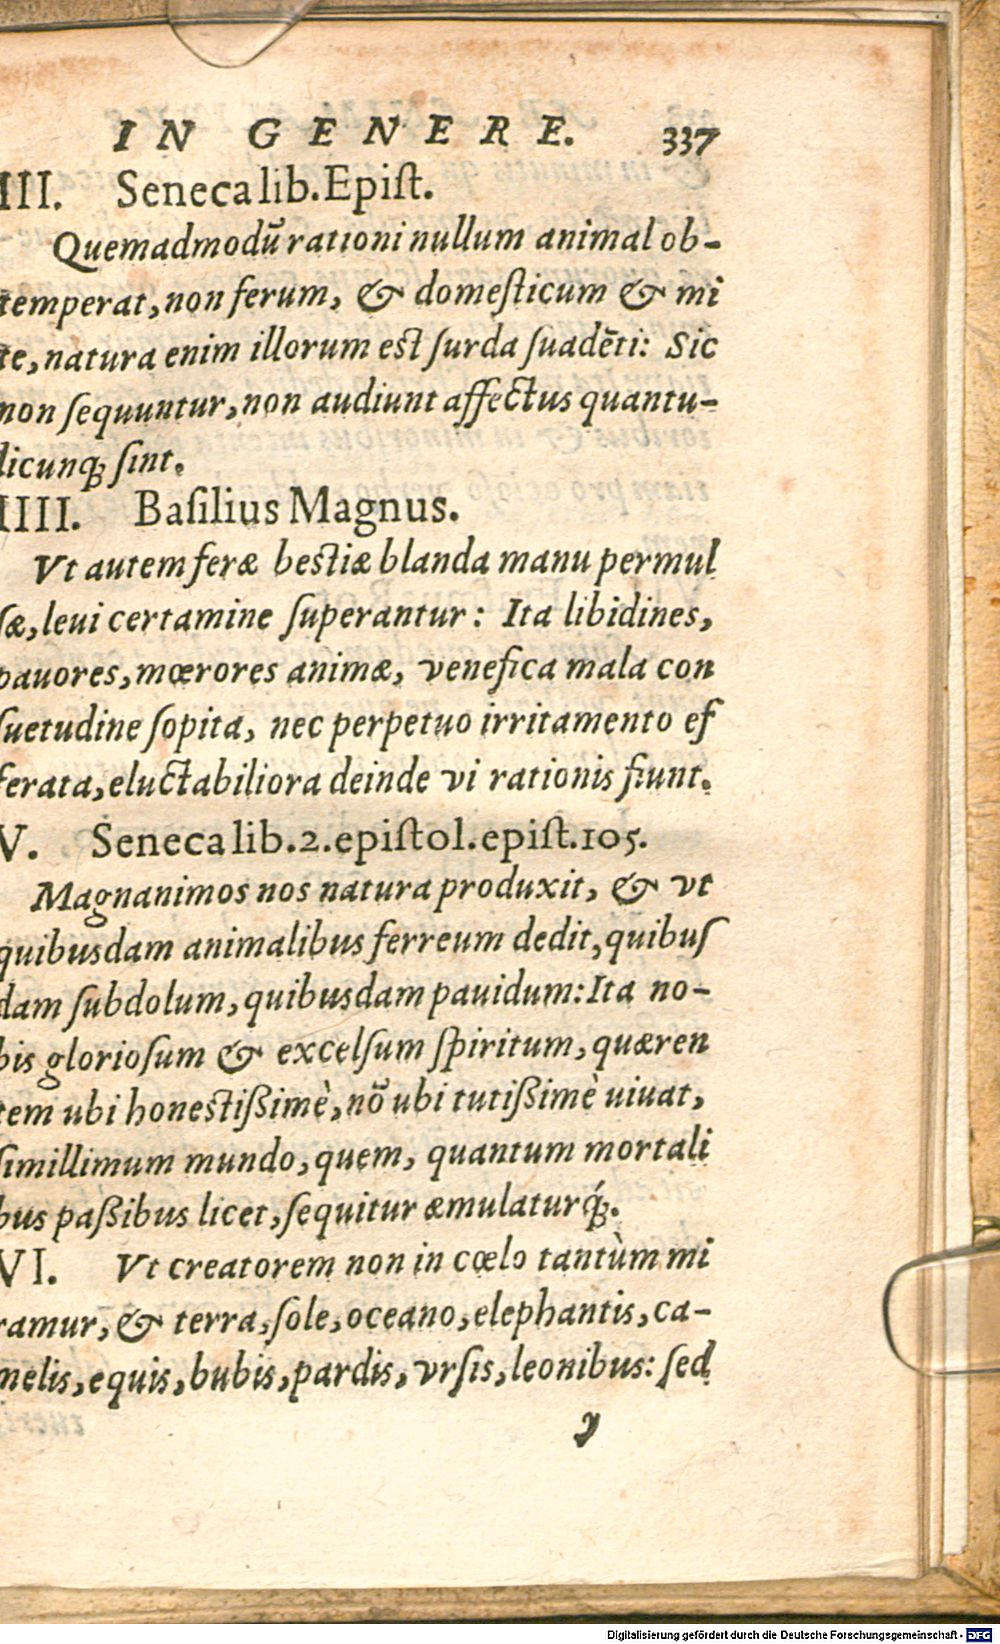 IN GENERE. 337
III. Seneca lib. Epiſt.
Quemadmodũ rationi nullum animal ob-
temperat, non ferum, & domeſticum & mi
te, natura enim illorum eſt ſurda ſuadẽti: Sic
non ſequuntur, non audiunt affectus quantu-
licunq; ſint.
IIII. Baſilius Magnus.
Vt autem feræ beſtiæ blanda manu permul
ſæ, leui certamine ſuperantur: Ita libidines,
pauores, mœrores animæ, venefica mala con
ſuetudine ſopita, nec perpetuo irritamento ef
ferata, eluctabiliora deinde vi rationis fiunt.
V. Seneca lib. 2. epiſtol. epiſt. 105.
Magnanimos nos natura produxit, & vt
quibusdam animalibus ferreum dedit, quibuſ
dam ſubdolum, quibusdam pauidum: Ita no-
bis glorioſum & excelſum ſpiritum, quæren
tem ubi honeſtißimè, nõ ubi tutißimè uiuat,
ſimillimum mundo, quem, quantum mortali
bus paßibus licet, ſequitur æmulaturq́;.
VI. Vt creatorem non in cœlo tantùm mi
ramur, & terra, ſole, oceano, elephantis, ca-
melis, equis, bubis, pardis, vrſis, leonibus: ſed
y
Digitalisierung gefördert durch die Deutsche Forschungsgemeinschaft - DFG